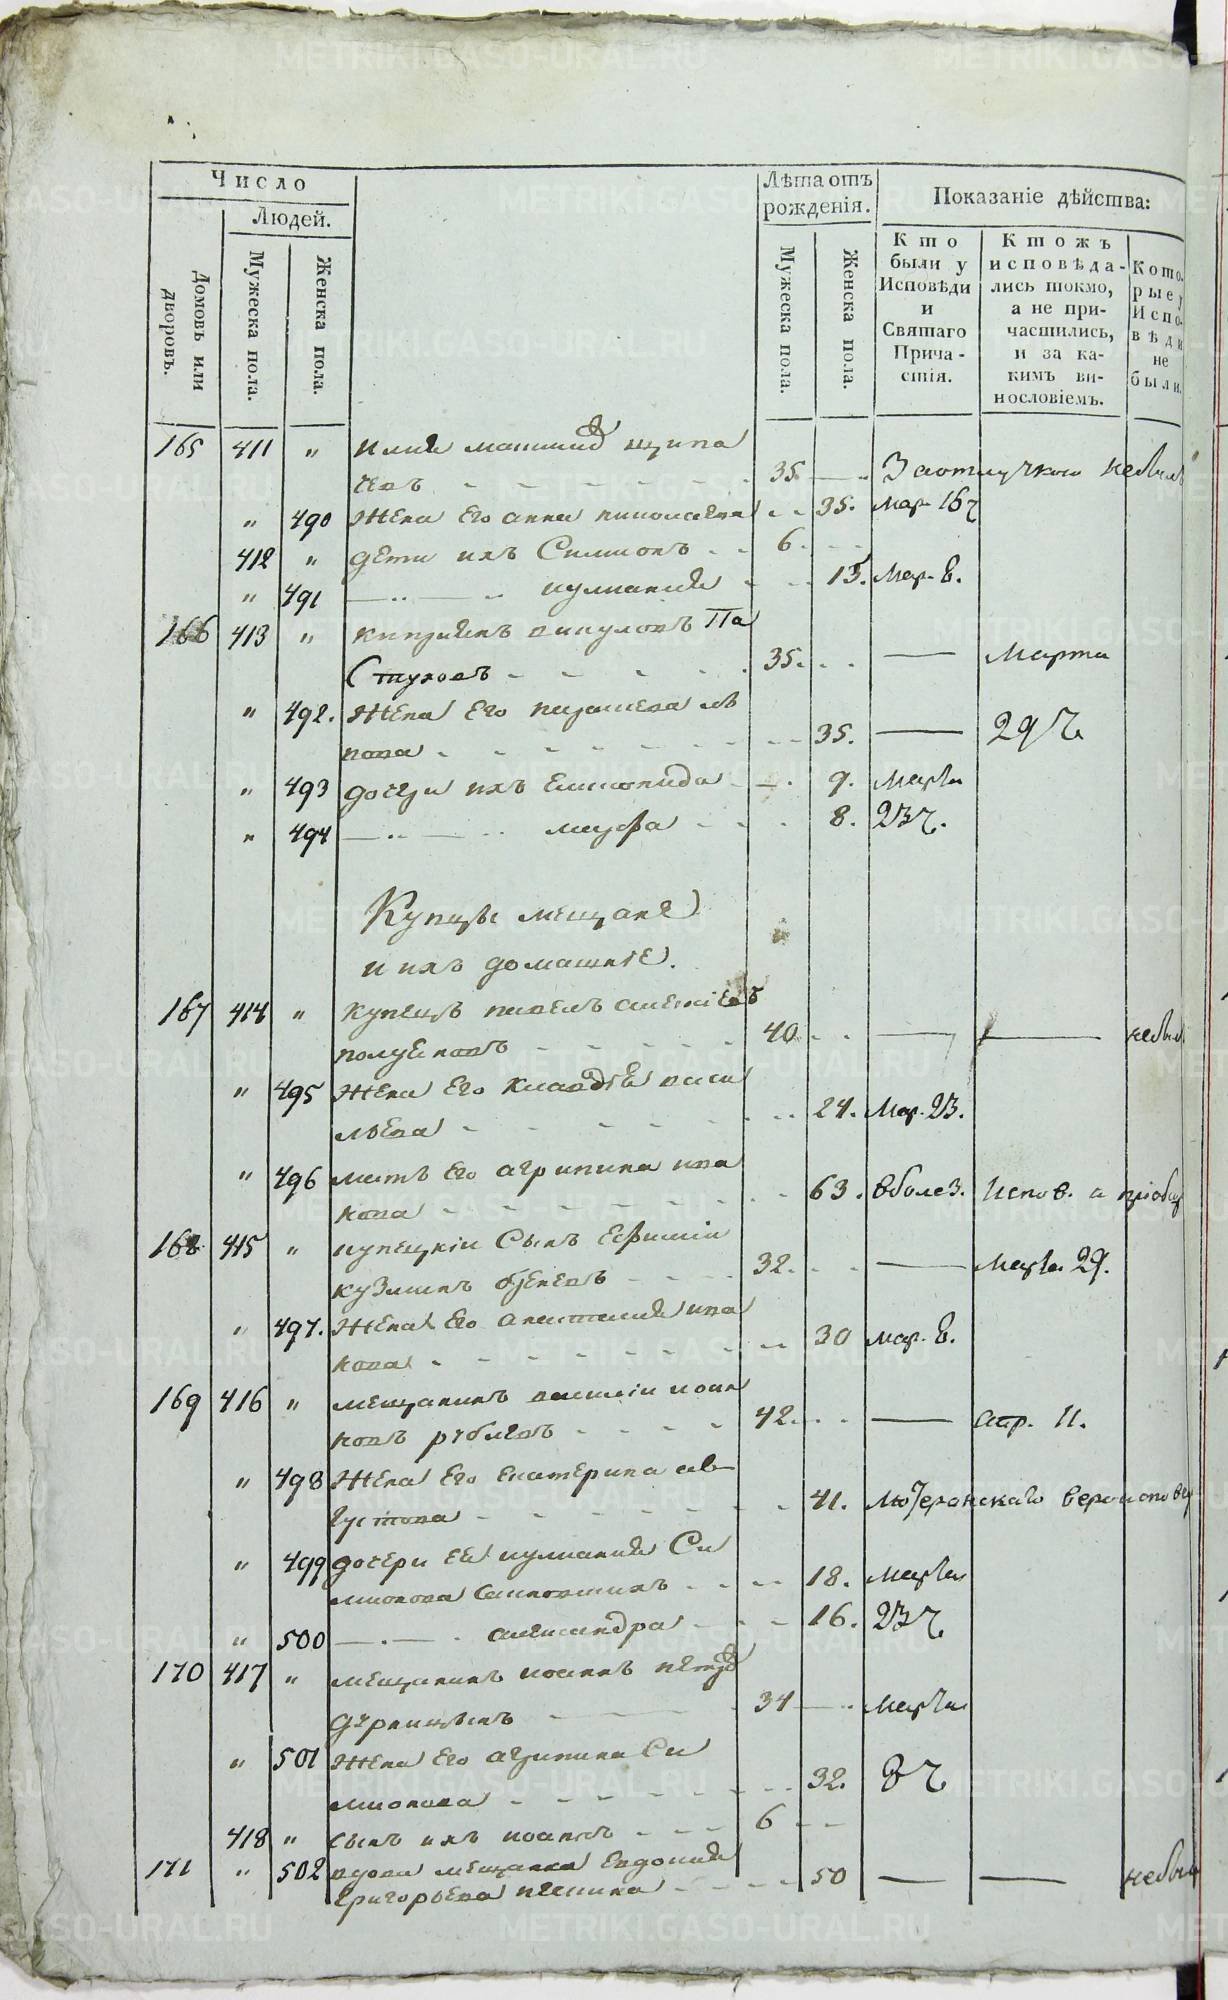 Число
Людей.
Домовъ или дворовъ.
Мужеска пола.
Женска пола.
Лѣта отъ рожденія.
Мужеска пола.
Женска пола.
Показаніе дѣйства:
Кто были у Исповѣди и Святаго Прича-стія.
Ктожъ исповѣда-лись токмо, а не при-частились, и за ка-кимъ ви-нословіемъ.
Кото-рые у Испо-вѣди не были.
165 411 "
35. За отлучкою небылъ
" 490 Жена Его анна 35. мар. 16 ч
412 " дети ихъ Симионъ 6.
" 491 иулиания 13. Мар. 8.
166 413 " викуловъ Па
стуховъ 35. Марта
" 492. Жена Его
35. 29 ч.
" 493 дочери ихъ 9. марта
" 494 марфа 8. 23 ч.
Купцы мещане
и ихъ домашнiе.
167 414 " Купецъ павелъ алексiевъ
полуехтовъ 40 небылъ
" 495 Жена Его клавдiя васи
льева 24. Мар. 23.
" 496 мать Его агрипина ива
нова 63. в болез. Испов. и прiобщ
168 415 " купецкiи Сынъ Ефимiи
кузминъ 32. марта 29.
" 497. Жена Его анастасия ива
нова 30 мар. 8.
169 416 " мещанинъ василiи иоан
новъ рублевъ 42. апр. 11.
" 498 Жена Его екатерина ав
густова 41. Лютеранскаго вероисповед
" 499 дочери ея иулиания Си
мионова 18. марта
" 500 александра 16. 23 ч
170 417 " мещанинъ иоаннъ петровъ
34 марта
" 501 Жена Его агрипина Си
мионова 32. 8 ч
418 " сынъ ихъ иоаннъ 6
171 " 502 вдова мещанка Евдокия 50 небыла
Григорьева